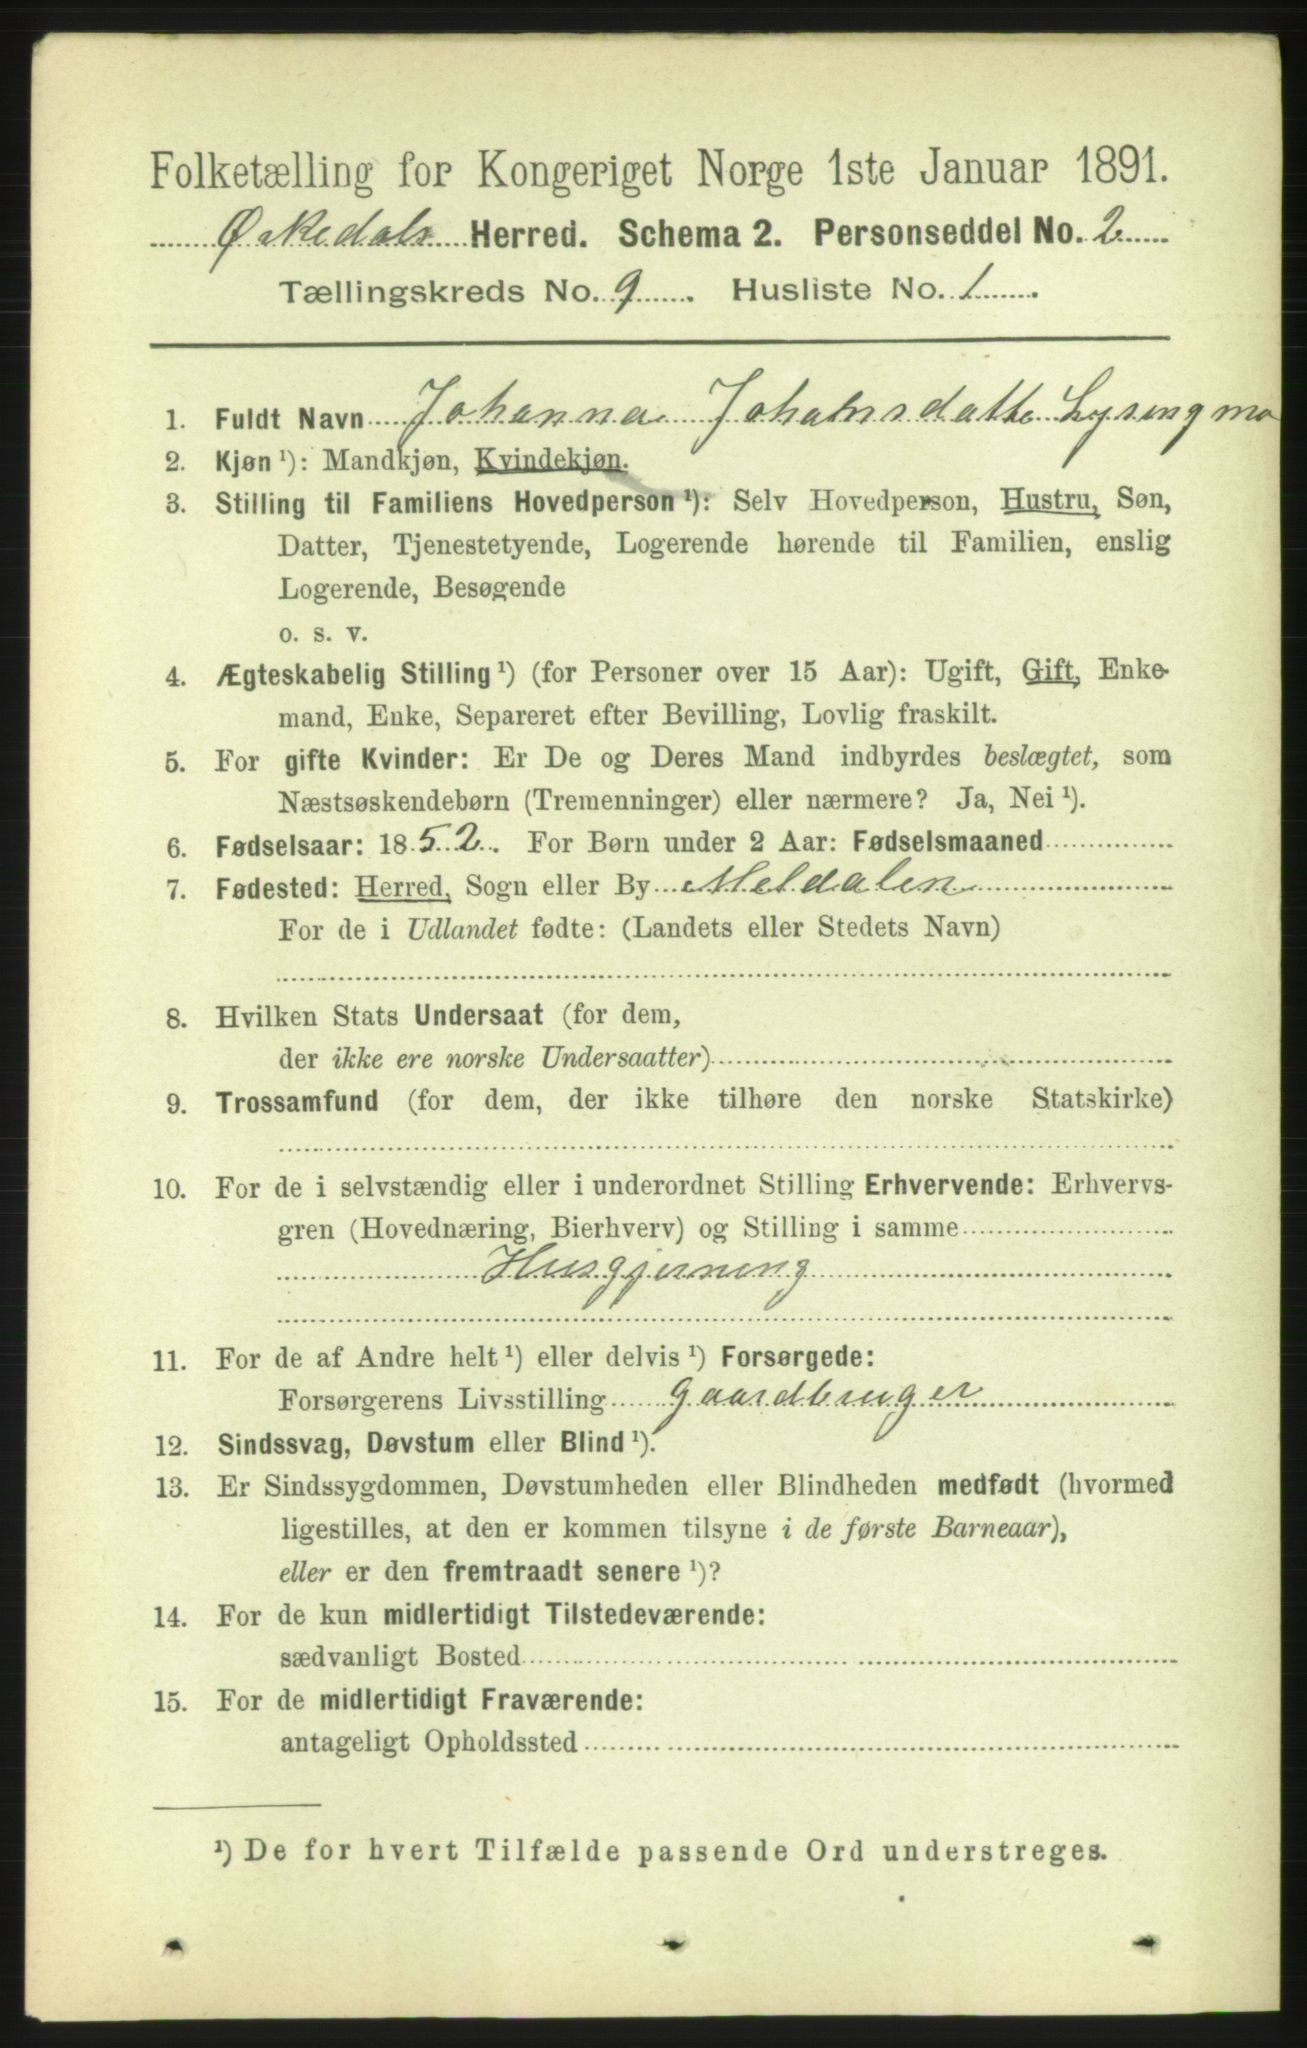 Folketælling for Kongeriget Norge 1ste Januar 1891.
Ørkedals Herred. Schema 2. Personseddel No. 2
Tællingskreds No. 9. Husliste No. 1.
1. Fuldt Navn Johanna Johansdatter Lysingmo
2. Kjøn ¹): Mandkjøn, Kvindekjøn.
3. Stilling til Familiens Hovedperson ¹): Selv Hovedperson, Hustru, Søn,
Datter, Tjenestetyende, Logerende hørende til Familien, enslig
Logerende, Besøgende
o. s. v.
4. Ægteskabelig Stilling ¹) (for Personer over 15 Aar): Ugift, Gift, Enke-
mand, Enke, Separeret efter Bevilling, Lovlig fraskilt.
5. For gifte Kvinder: Er De og Deres Mand indbyrdes beslægtet, som
Næstsøskendebørn (Tremenninger) eller nærmere? Ja, Nei ¹).
6. Fødselsaar: 1852. For Børn under 2 Aar: Fødselsmaaned
7. Fødested: Herred, Sogn eller By Meldalen
For de i Udlandet fødte: (Landets eller Stedets Navn)
8. Hvilken Stats Undersaat (for dem,
der ikke ere norske Undersaatter)
9. Trossamfund (for dem, der ikke tilhøre den norske Statskirke)
10. For de i selvstændig eller i underordnet Stilling Erhvervende: Erhvervs-
gren (Hovednæring, Bierhverv) og Stilling i samme
Husgjerning
11. For de af Andre helt ¹) eller delvis ¹) Forsørgede:
Forsørgerens Livsstilling Gaardbruger
12. Sindssvag, Døvstum eller Blind ¹).
13. Er Sindssygdommen, Døvstumheden eller Blindheden medfødt (hvormed
ligestilles, at den er kommen tilsyne i de første Barneaar),
eller er den fremtraadt senere ¹)?
14. For de kun midlertidigt Tilstedeværende:
sædvanligt Bosted
15. For de midlertidigt Fraværende:
antageligt Opholdssted
¹) De for hvert Tilfælde passende Ord understreges.